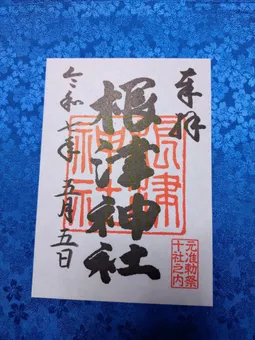 奉拝
根津神社
令和七年 五月五日
根津神社
元准勅祭
十社之内